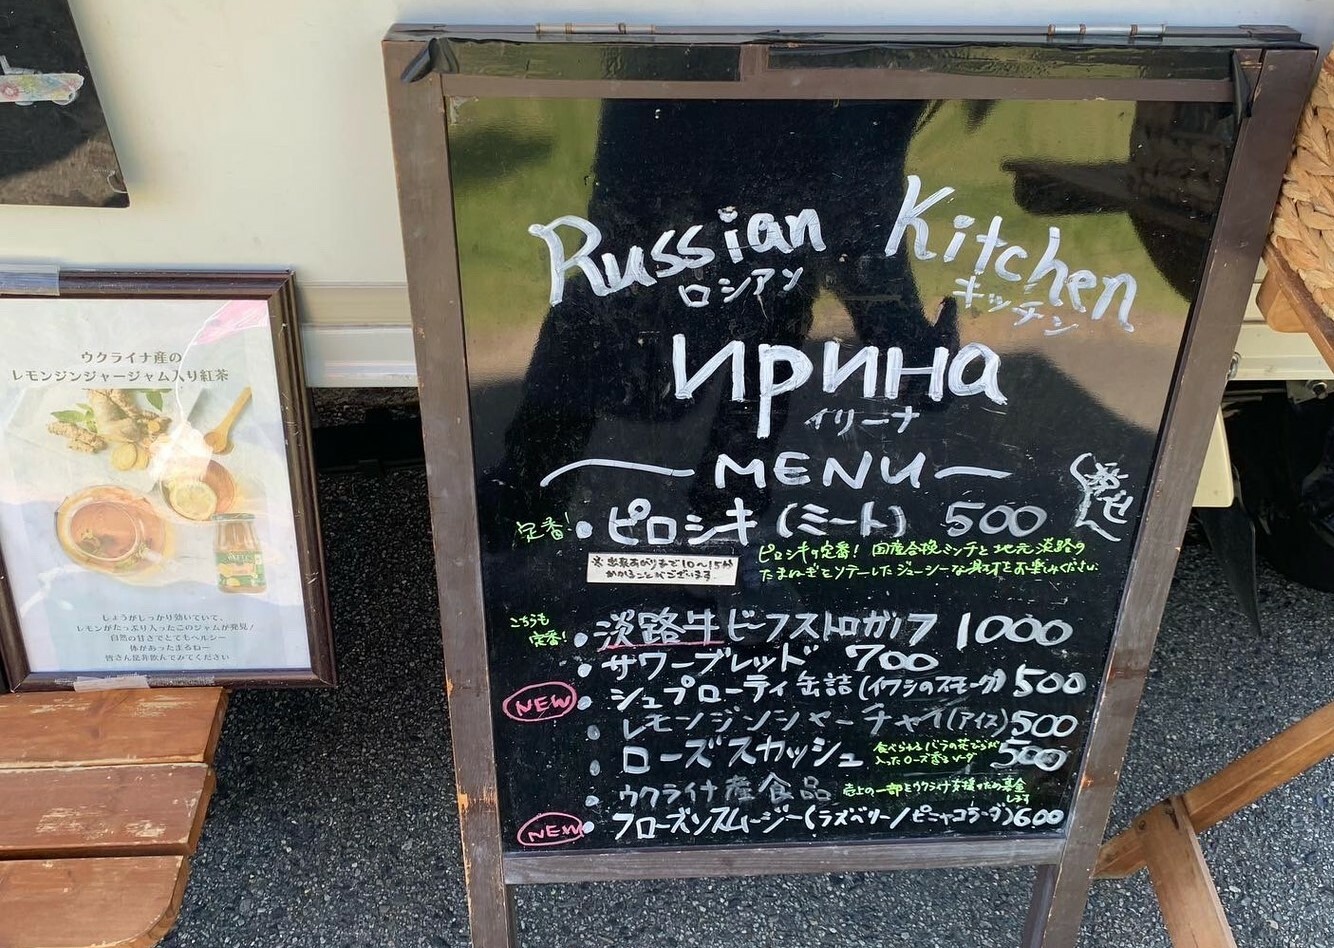 ウクライナ産の
レモンジンジャージャム入り紅茶
しょうがしっかり効いていて、
レモンがたっぷり入ったこのジャムが発見!
自然の甘さでとてもヘルシー
体があったまるねー
皆さん是非飲んでみてください
Russian Kitchen
ロシアン キッチン
Ирина
イリーナ
MENU
税込
定番! ・ピロシキ (ミート) 500
※出来あがりまで10〜15分
かかることがございます。
ピロシキの定番! 国産合挽ミンチと地元淡路の
たまねぎをソテーしたジューシーな具材をお楽しみください
こちらも
定番!
・淡路牛ビーフストロガノフ 1000
・サワーブレッド 700
NEW ・シュプローティ缶詰(イワシのスモーク) 500
・レモンジンジャーチャイ(アイス) 500
・ローズスカッシュ 500
食べられるバラの花びらが
入ったローズ香るソーダ
・ウクライナ産食品
売上の一部をウクライナ支援のため募金
します
NEW ・フローズンスムージー(ラズベリー/ピニャコラーダ) 600